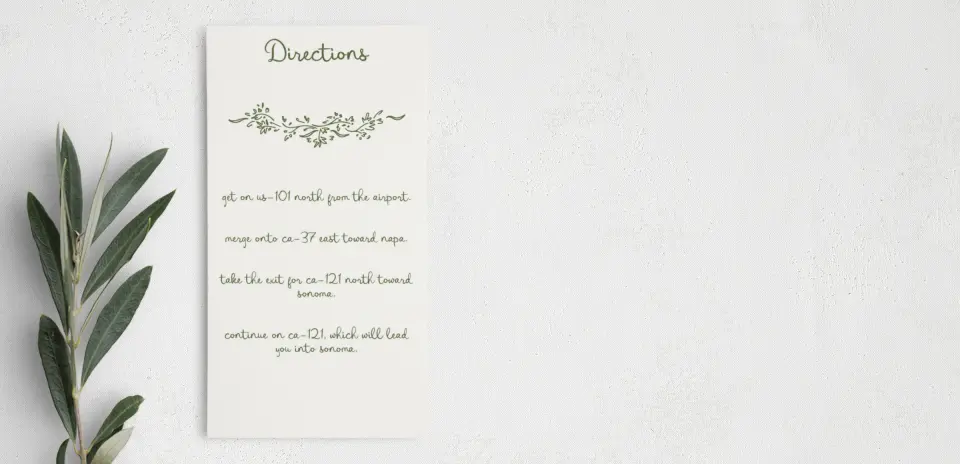 Directions
get on us-101 north from the airport.
merge onto ca-37 east toward napa.
take the exit for ca-121 north toward
sonoma.
continue on ca-121, which will lead
you into sonoma.